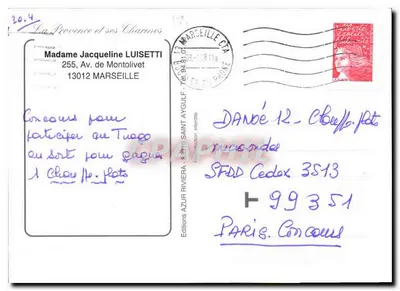 30.4
La Provence et ses Charmes
Madame Jacqueline LUISETTI
255, Av. de Montolivet
13012 MARSEILLE
Concours pour
participer au Tirage
au sort pour gagner
1 Chauffe-plats
Editions AZUR RIVIERA - SAINT AYGULF - Tél. 94.81.0
13 MARSEILLE CTA
DANOË 12 - Chauffe-plats
SFDD Cedex 3513
99351
PARIS. Concours